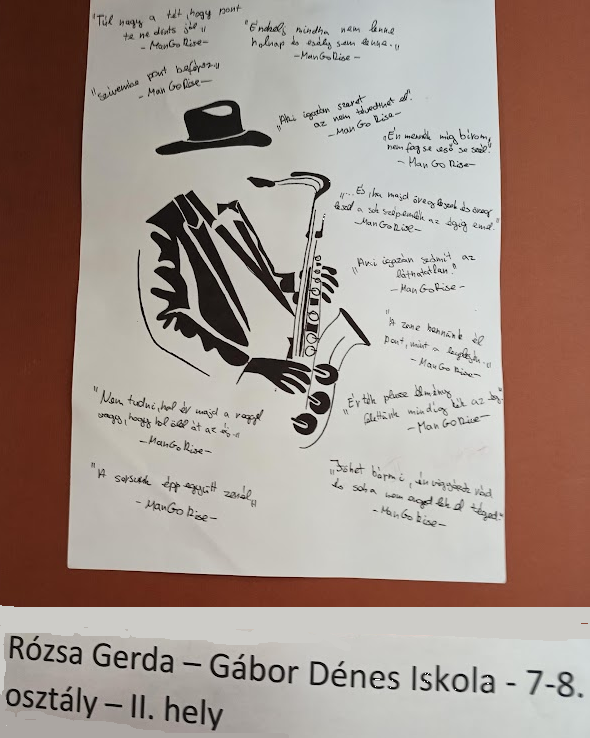 "Túl nagy a tét, hogy pont
te ne dönts jól"
- ManGoRise-
"Énekelj mintha nem lenne
holnap és esély sem lenne."
-ManGoRise-
"szívembe pont
- ManGoRise-
"Aki igazán szeret
az nem tévedhet el."
- ManGoRise-
"Én mennék míg bírom,
nem fog se eső se szél."
- ManGoRise
"...És, ha majd öreg leszek és öreg
leszel a sok szépemlék az égig emel."
-ManGoRise-
"Ami igazán számít az
láthatatlan."
- ManGoRise-
"A zene bennünk él
pont, mint a
- ManGoRise
"Érték plusz élmény
felettünk mindig kék az ég"
- ManGoRise-
"Nem tudni, hol ér majd a reggel
vagy, hogy hol
-ManGoRise-
"A sorsunk épp együtt zenél"
- ManGoRise-
"Jöhet bármi, én vigyázok rád
és soha nem engedlek el téged."
- ManGoRise-
Rózsa Gerda – Gábor Dénes Iskola - 7-8.
osztály – II. hely